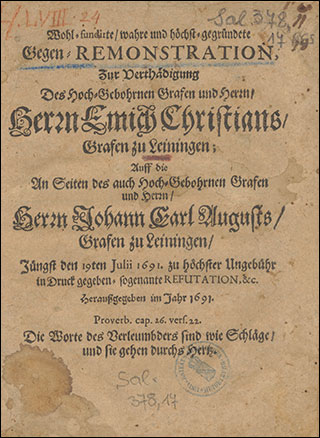 LVIII. 74
Sal. 378,
17
Wohl-fundirte/ wahre und höchst-gegründete
Gegen-REMONSTRATION,
Zur Verthädigung
Des Hoch-Gebohrnen Grafen und Herrn/
Herrn Emich Christians/
Grafen zu Leiningen;
Auff die
An Seiten des auch Hoch-Gebohrnen Grafen
und Herrn/
Herrn Johann Carl Augusts/
Grafen zu Leiningen/
Jüngst den 19ten Julii 1691. zu höchster Ungebühr
in Druck gegeben, sogenante REFUTATION, &c.
Heraußgegeben im Jahr 1691.
Proverb. cap. 26. vers. 22.
Die Worte des Verleumbders sind wie Schläge/
und sie gehen durchs Hertz.
Sal.
378,17